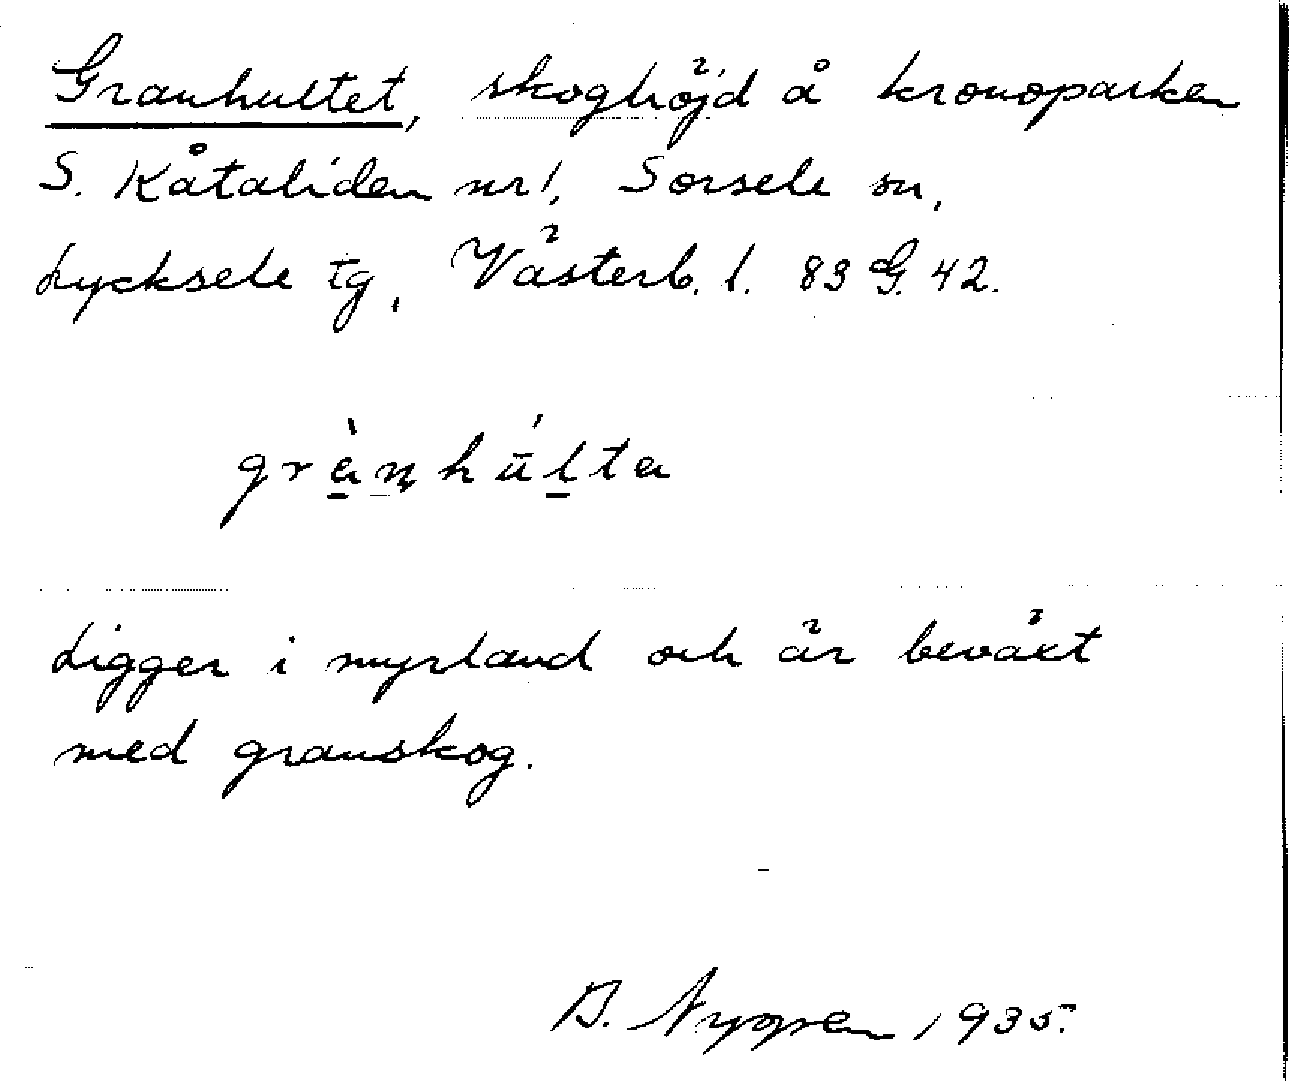 Granhultet, skoghöjd å kronoparken
S. Kåtaliden nr 1, Sorsele sn,
Lycksele tg, Västerb. l. 83 G. 42.
grànhúlta
Ligger i myrland och är beväxt
med granskog.
B. Nygren 1935.